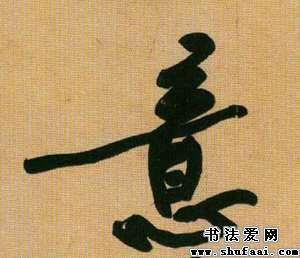 意
书法爱网
www.shufaai.com